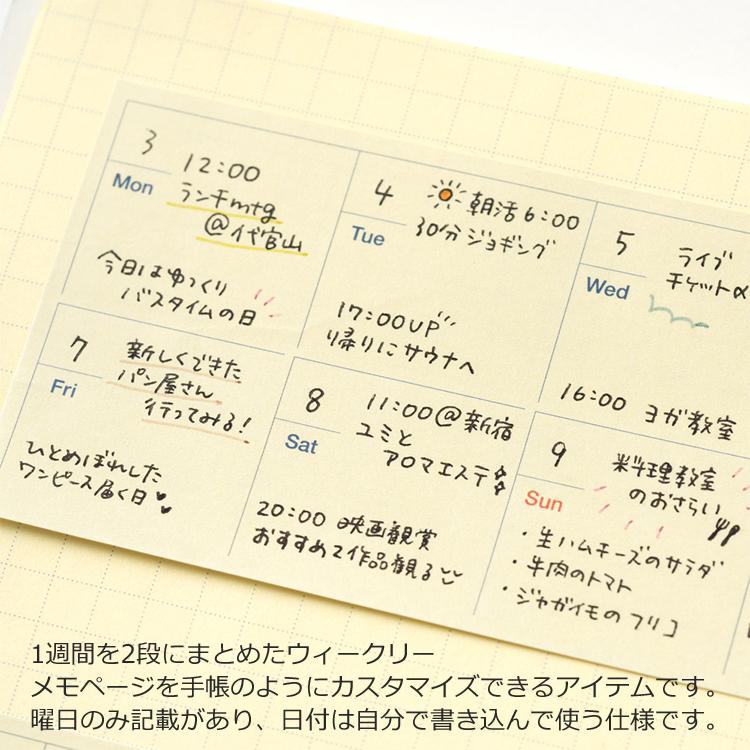 3
Mon
12:00
ランチmtg
@代官山
今日はゆっくり
バスタイムの日
4
Tue
朝活6:00
30分ジョギング
17:00UP
帰りにサウナへ
5
Wed
ライブ
チケット
16:00 ヨガ教室
7
Fri
新しくできた
パン屋さん
行ってみる!
ひとめぼれした
ワンピース届く日
8
Sat
11:00@新宿
ユミと
アロマエステ
20:00 映画観賞
おすすめ2作品観る
9
Sun
料理教室
のおさらい
・生ハムチーズのサラダ
・牛肉のトマト
・ジャガイモのフリコ
1週間を2段にまとめたウィークリー
メモページを手帳のようにカスタマイズできるアイテムです。
曜日のみ記載があり、日付は自分で書き込んで使う仕様です。